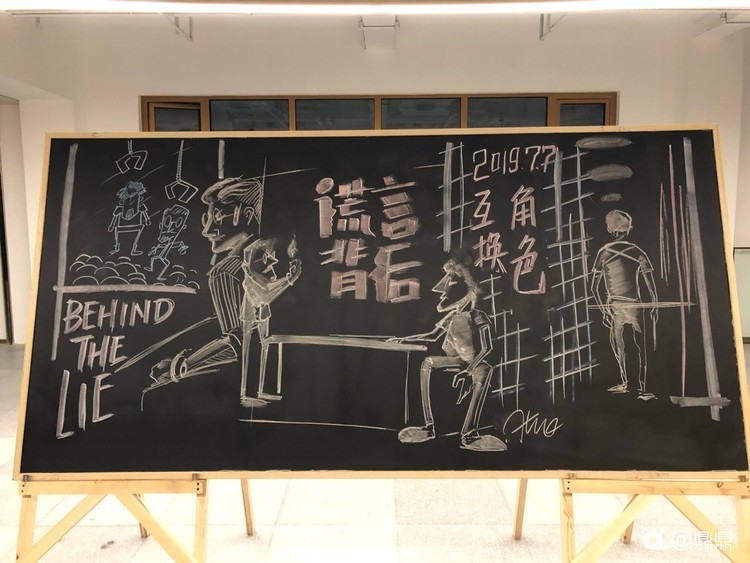 BEHIND
THE
LIE
谎言
背后
2019.7.7
互换
角色
@鼎鼎